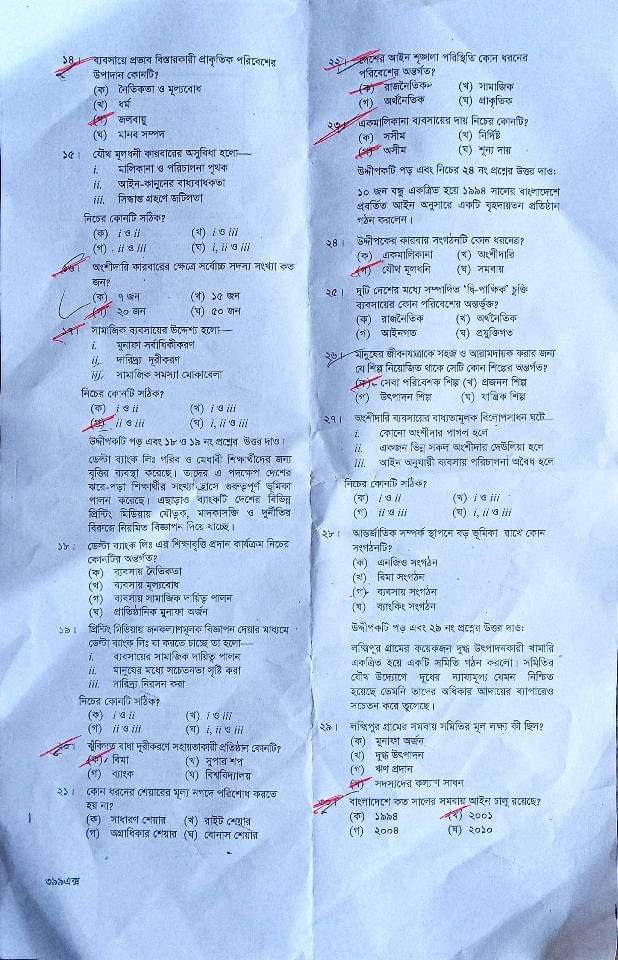 ১৪। ব্যবসায়ে প্রভাব বিস্তারকারী প্রাকৃতিক পরিবেশের
উপাদান কোনটি?
(ক) নৈতিকতা ও মূল্যবোধ
(খ) ধর্ম
(গ) জলবায়ু
(ঘ) মানব সম্পদ
১৫। যৌথ মূলধনী কারবারের অসুবিধা হলো—
i. মালিকানা ও পরিচালনা পৃথক
ii. আইন-কানুনের বাধ্যবাধকতা
iii. সিদ্ধান্ত গ্রহণে জটিলতা
নিচের কোনটি সঠিক?
(ক) i ও ii (খ) i ও iii
(গ) ii ও iii (ঘ) i, ii ও iii
১৬। অংশীদারি কারবারের ক্ষেত্রে সর্বোচ্চ সদস্য সংখ্যা কত
জন?
(ক) ৭ জন (খ) ১৫ জন
(গ) ২০ জন (ঘ) ৫০ জন
১৭। সামাজিক ব্যবসায়ের উদ্দেশ্য হলো—
i. মুনাফা সর্বাধিকীকরণ
ii. দারিদ্র্য দূরীকরণ
iii. সামাজিক সমস্যা মোকাবেলা
নিচের কোনটি সঠিক?
(ক) i ও ii (খ) i ও iii
(গ) ii ও iii (ঘ) i, ii ও iii
উদ্দীপকটি পড় এবং ১৮ ও ১৯ নং প্রশ্নের উত্তর দাও।
ডেল্টা ব্যাংক লিঃ গরিব ও মেধাবী শিক্ষার্থীদের জন্য
বৃত্তির ব্যবস্থা করেছে। তাদের এ পদক্ষেপ দেশের
ঝরে-পড়া শিক্ষার্থীর সংখ্যা হ্রাসে গুরুত্বপূর্ণ ভূমিকা
পালন করেছে। এছাড়াও ব্যাংকটি দেশের বিভিন্ন
প্রিন্টিং মিডিয়ায় যৌতুক, মাদকাসক্তি ও দুর্নীতির
বিরুদ্ধে নিয়মিত বিজ্ঞাপন দিয়ে যাচ্ছে।
১৮। ডেল্টা ব্যাংক লিঃ এর শিক্ষাবৃত্তি প্রদান কার্যক্রম নিচের
কোনটির অন্তর্গত?
(ক) ব্যবসায় নৈতিকতা
(খ) ব্যবসায় মূল্যবোধ
(গ) ব্যবসায় সামাজিক দায়িত্ব পালন
(ঘ) প্রাতিষ্ঠানিক মুনাফা অর্জন
১৯। প্রিন্টিং মিডিয়ায় জনকল্যাণমূলক বিজ্ঞাপন দেয়ার মাধ্যমে
ডেল্টা ব্যাংক লিঃ যা করতে চাচ্ছে তা হলো—
i. ব্যবসায়ের সামাজিক দায়িত্ব পালন
ii. মানুষের মধ্যে সচেতনতা সৃষ্টি করা
iii. দারিদ্র্য নিরসন করা
নিচের কোনটি সঠিক?
(ক) i ও ii (খ) i ও iii
(গ) ii ও iii (ঘ) i, ii ও iii
২০। ঝুঁকিগত বাধা দূরীকরণে সহায়তাকারী প্রতিষ্ঠান কোনটি?
(ক) বিমা (খ) সুপার শপ
(গ) ব্যাংক (ঘ) বিশ্ববিদ্যালয়
২১। কোন ধরনের শেয়ারের মূল্য নগদে পরিশোধ করতে
হয় না?
(ক) সাধারণ শেয়ার (খ) রাইট শেয়ার
(গ) অগ্রাধিকার শেয়ার (ঘ) বোনাস শেয়ার
৩৯৯এক্স
২২। দেশের আইন শৃঙ্খলা পরিস্থিতি কোন ধরনের
পরিবেশের অন্তর্গত?
(ক) রাজনৈতিক (খ) সামাজিক
(গ) অর্থনৈতিক (ঘ) প্রাকৃতিক
২৩। একমালিকানা ব্যবসায়ের দায় নিচের কোনটি?
(ক) সসীম (খ) নির্দিষ্ট
(গ) অসীম (ঘ) শূন্য দায়
উদ্দীপকটি পড় এবং নিচের ২৪ নং প্রশ্নের উত্তর দাও:
১০ জন বন্ধু একত্রিত হয়ে ১৯৯৪ সালের বাংলাদেশে
প্রবর্তিত আইন অনুসারে একটি বৃহদায়তন প্রতিষ্ঠান
গঠন করলেন।
২৪। উদ্দীপকের কারবার সংগঠনটি কোন ধরনের?
(ক) একমালিকানা (খ) অংশীদারি
(গ) যৌথ মূলধনি (ঘ) সমবায়
২৫। দুটি দেশের মধ্যে সম্পাদিত 'দ্বি-পাক্ষিক' চুক্তি
ব্যবসায়ের কোন পরিবেশের অন্তর্ভুক্ত?
(ক) রাজনৈতিক (খ) অর্থনৈতিক
(গ) আইনগত (ঘ) প্রযুক্তিগত
২৬। মানুষের জীবনযাত্রাকে সহজ ও আরামদায়ক করার জন্য
যে শিল্প নিয়োজিত থাকে সেটি কোন শিল্পের অন্তর্গত?
(ক) সেবা পরিবেশক শিল্প (খ) প্রজনন শিল্প
(গ) উৎপাদন শিল্প (ঘ) যান্ত্রিক শিল্প
২৭। অংশীদারি ব্যবসায়ের বাধ্যতামূলক বিলোপসাধন ঘটে—
i. কোনো অংশীদার পাগল হলে
ii. একজন ভিন্ন সকল অংশীদার দেউলিয়া হলে
iii. আইন অনুযায়ী ব্যবসায় পরিচালনা অবৈধ হলে
নিচের কোনটি সঠিক?
(ক) i ও ii (খ) i ও iii
(গ) ii ও iii (ঘ) i, ii ও iii
২৮। আন্তর্জাতিক সম্পর্ক স্থাপনে বড় ভূমিকা রাখে কোন
সংগঠনটি?
(ক) এনজিও সংগঠন
(খ) বিমা সংগঠন
(গ) ব্যবসায় সংগঠন
(ঘ) ব্যাংকিং সংগঠন
উদ্দীপকটি পড় এবং ২৯ নং প্রশ্নের উত্তর দাও:
লক্ষ্মিপুর গ্রামের কয়েকজন দুগ্ধ উৎপাদনকারী খামারি
একত্রিত হয়ে একটি সমিতি গঠন করলো। সমিতির
যৌথ উদ্যোগে দুধের ন্যায্যমূল্য যেমন নিশ্চিত
হয়েছে তেমনি তাদের অধিকার আদায়ের ব্যাপারেও
সচেতন করে তুলেছে।
২৯। লক্ষ্মিপুর গ্রামের সমবায় সমিতির মূল লক্ষ্য কী ছিল?
(ক) মুনাফা অর্জন
(খ) দুগ্ধ উৎপাদন
(গ) ঋণ প্রদান
(ঘ) সদস্যদের কল্যাণ সাধন
৩০। বাংলাদেশে কত সালের সমবায় আইন চালু রয়েছে?
(ক) ১৯৯৪ (খ) ২০০১
(গ) ২০০৪ (ঘ) ২০১০